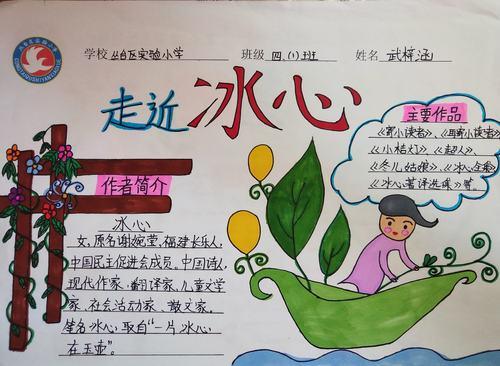 学校 丛台区实验小学 班级 四、(1)班 姓名 武梓涵
走近冰心
主要作品
《寄小读者》、《再寄小读者》
《小桔灯》、《超人》、
《冬儿姑娘》、《冰心全集》
《冰心著译选集》等。
作者简介
冰心
女,原名谢婉莹,福建长乐人,
中国民主促进会成员。中国诗人,
现代作家、翻译家、儿童文学
家、社会活动家、散文家。
笔名冰心取自“一片冰心
在玉壶”。